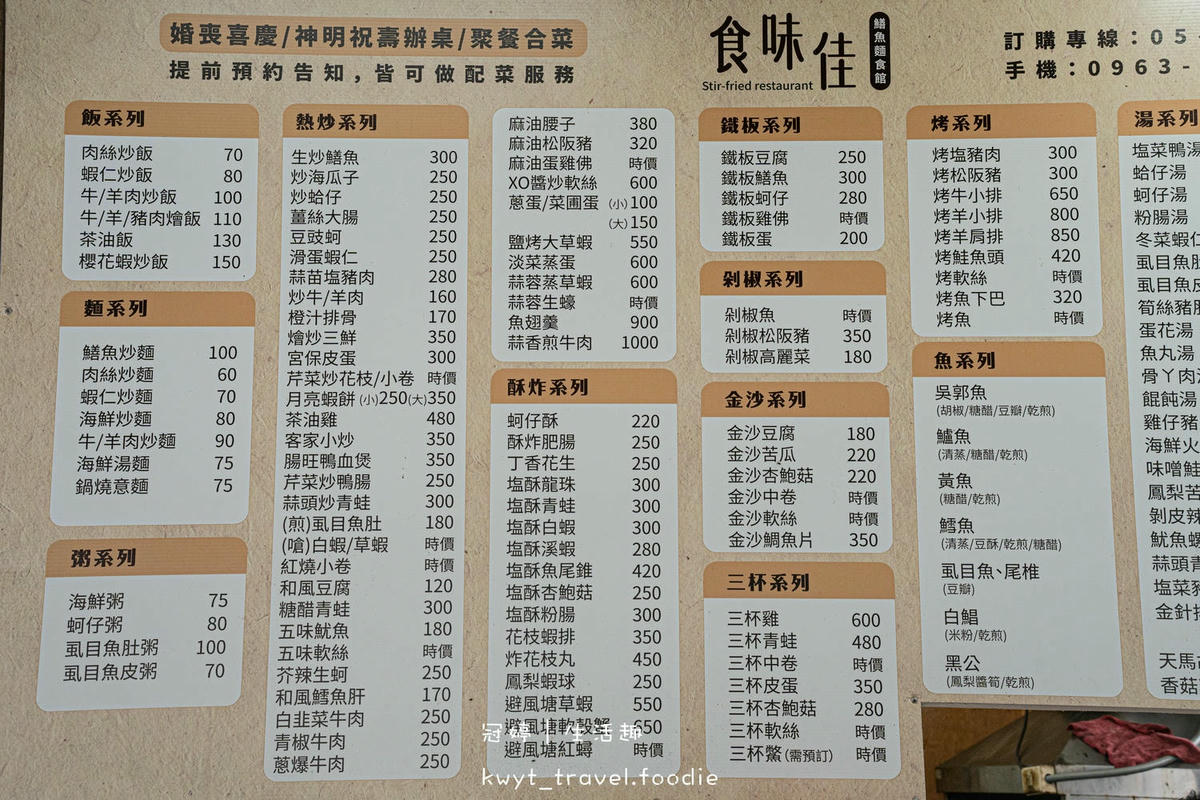 婚喪喜慶/神明祝壽辦桌/聚餐合菜
提前預約告知,皆可做配菜服務
食味佳
鱔魚麵食館
Stir-fried restaurant
訂購專線:05-
手機:0963-
飯系列
肉絲炒飯 70
蝦仁炒飯 80
牛/羊肉炒飯 100
牛/羊/豬肉燴飯 110
茶油飯 130
櫻花蝦炒飯 150
麵系列
鱔魚炒麵 100
肉絲炒麵 60
蝦仁炒麵 70
海鮮炒麵 80
牛/羊肉炒麵 90
海鮮湯麵 75
鍋燒意麵 75
粥系列
海鮮粥 75
蚵仔粥 80
虱目魚肚粥 100
虱目魚皮粥 70
熱炒系列
生炒鱔魚 300
炒海瓜子 250
炒蛤仔 250
薑絲大腸 250
豆豉蚵 250
滑蛋蝦仁 250
蒜苗塩豬肉 280
炒牛/羊肉 160
橙汁排骨 170
燴炒三鮮 350
宮保皮蛋 300
芹菜炒花枝/小卷 時價
月亮蝦餅 (小)250(大)350
茶油雞 480
客家小炒 350
腸旺鴨血煲 350
芹菜炒鴨腸 250
蒜頭炒青蛙 300
(煎)虱目魚肚 180
(嗆)白蝦/草蝦 時價
紅燒小卷 時價
和風豆腐 120
糖醋青蛙 300
五味魷魚 180
五味軟絲 時價
芥辣生蚵 250
和風鱈魚肝 170
白韭菜牛肉 250
青椒牛肉 250
蔥爆牛肉 250
麻油腰子 380
麻油松阪豬 320
麻油蛋雞佛 時價
XO醬炒軟絲 600
蔥蛋/菜圃蛋 (小)100
(大)150
鹽烤大草蝦 550
淡菜蒸蛋 600
蒜蓉蒸草蝦 600
蒜蓉生蠔 時價
魚翅羹 900
蒜香煎牛肉 1000
酥炸系列
蚵仔酥 220
酥炸肥腸 250
丁香花生 250
塩酥龍珠 300
塩酥青蛙 300
塩酥白蝦 300
塩酥溪蝦 280
塩酥魚尾錐 420
塩酥杏鮑菇 250
塩酥粉腸 300
花枝蝦排 350
炸花枝丸 450
鳳梨蝦球 250
避風塘草蝦 550
避風塘軟殼蟹 650
避風塘紅蟳 時價
鐵板系列
鐵板豆腐 250
鐵板鱔魚 300
鐵板蚵仔 280
鐵板雞佛 時價
鐵板蛋 200
剁椒系列
剁椒魚 時價
剁椒松阪豬 350
剁椒高麗菜 180
金沙系列
金沙豆腐 180
金沙苦瓜 220
金沙杏鮑菇 220
金沙中卷 時價
金沙軟絲 時價
金沙鯛魚片 350
三杯系列
三杯雞 600
三杯青蛙 480
三杯中卷 時價
三杯皮蛋 350
三杯杏鮑菇 280
三杯軟絲 時價
三杯鱉(需預訂) 時價
烤系列
烤塩豬肉 300
烤松阪豬 300
烤牛小排 650
烤羊小排 800
烤羊肩排 850
烤鮭魚頭 420
烤軟絲 時價
烤魚下巴 320
烤魚 時價
魚系列
吳郭魚
(胡椒/糖醋/豆瓣/乾煎)
鱸魚
(清蒸/糖醋/乾煎)
黃魚
(糖醋/乾煎)
鱈魚
(清蒸/豆酥/乾煎/糖醋)
虱目魚、尾椎
(豆瓣)
白鯧
(米粉/乾煎)
黑公
(鳳梨醬筍/乾煎)
湯系列
塩菜鴨湯
蛤仔湯
蚵仔湯
粉腸湯
冬菜蝦仁
虱目魚肚
虱目魚皮
筍絲豬腸
蛋花湯
魚丸湯
骨丫肉湯
餛飩湯
雞仔豬
海鮮火
味噌鮭
鳳梨苦
剝皮辣
魷魚螺
蒜頭青
塩菜豬
金針
天馬
香菇
冠婷|生活趣
kwyt_travel.foodie